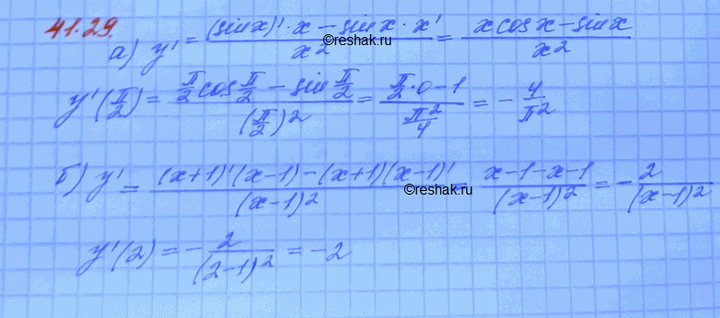 41.29.
а) y' = ((sin x)' · x − sin x · x')/x² = (x cos x − sin x)/x²
©reshak.ru
y'(π/2) = (π/2 cos π/2 − sin π/2)/(π/2)² = (π/2 · 0 − 1)/(π²/4) = − 4/π²
б) y' = ((x+1)'(x−1) − (x+1)(x−1)')/(x−1)² (x−1−x−1)/(x−1)² = − 2/(x−1)²
©reshak.ru
y'(2) = − 2/(2−1)² = −2